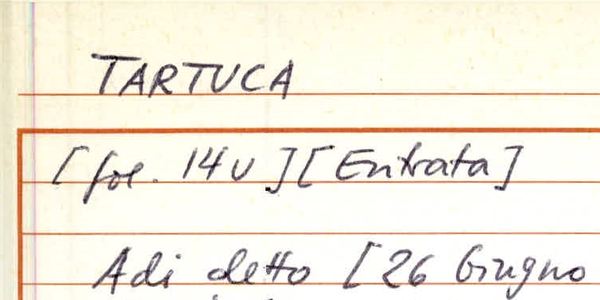 TARTUCA
[fol. 14v] [Entrata]
Adi detto [26 Giugno